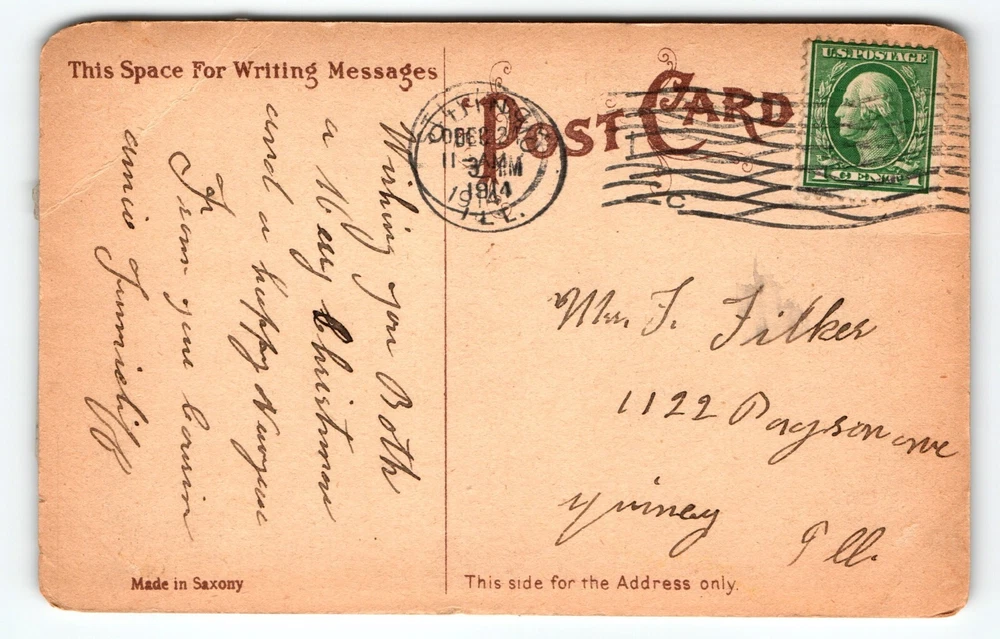 This Space For Writing Messages
POST CARD
U.S. POSTAGE
1 CENT 1
DEC 2
11 AM
3 PM
1914
ILL.
C
Wishing you Both
a Mery Christmas
and a happy
From your Cousin
annie
Mrs. F. Filker
1122 Payson ave
Quincy
Ill.
Made in Saxony
This side for the Address only.